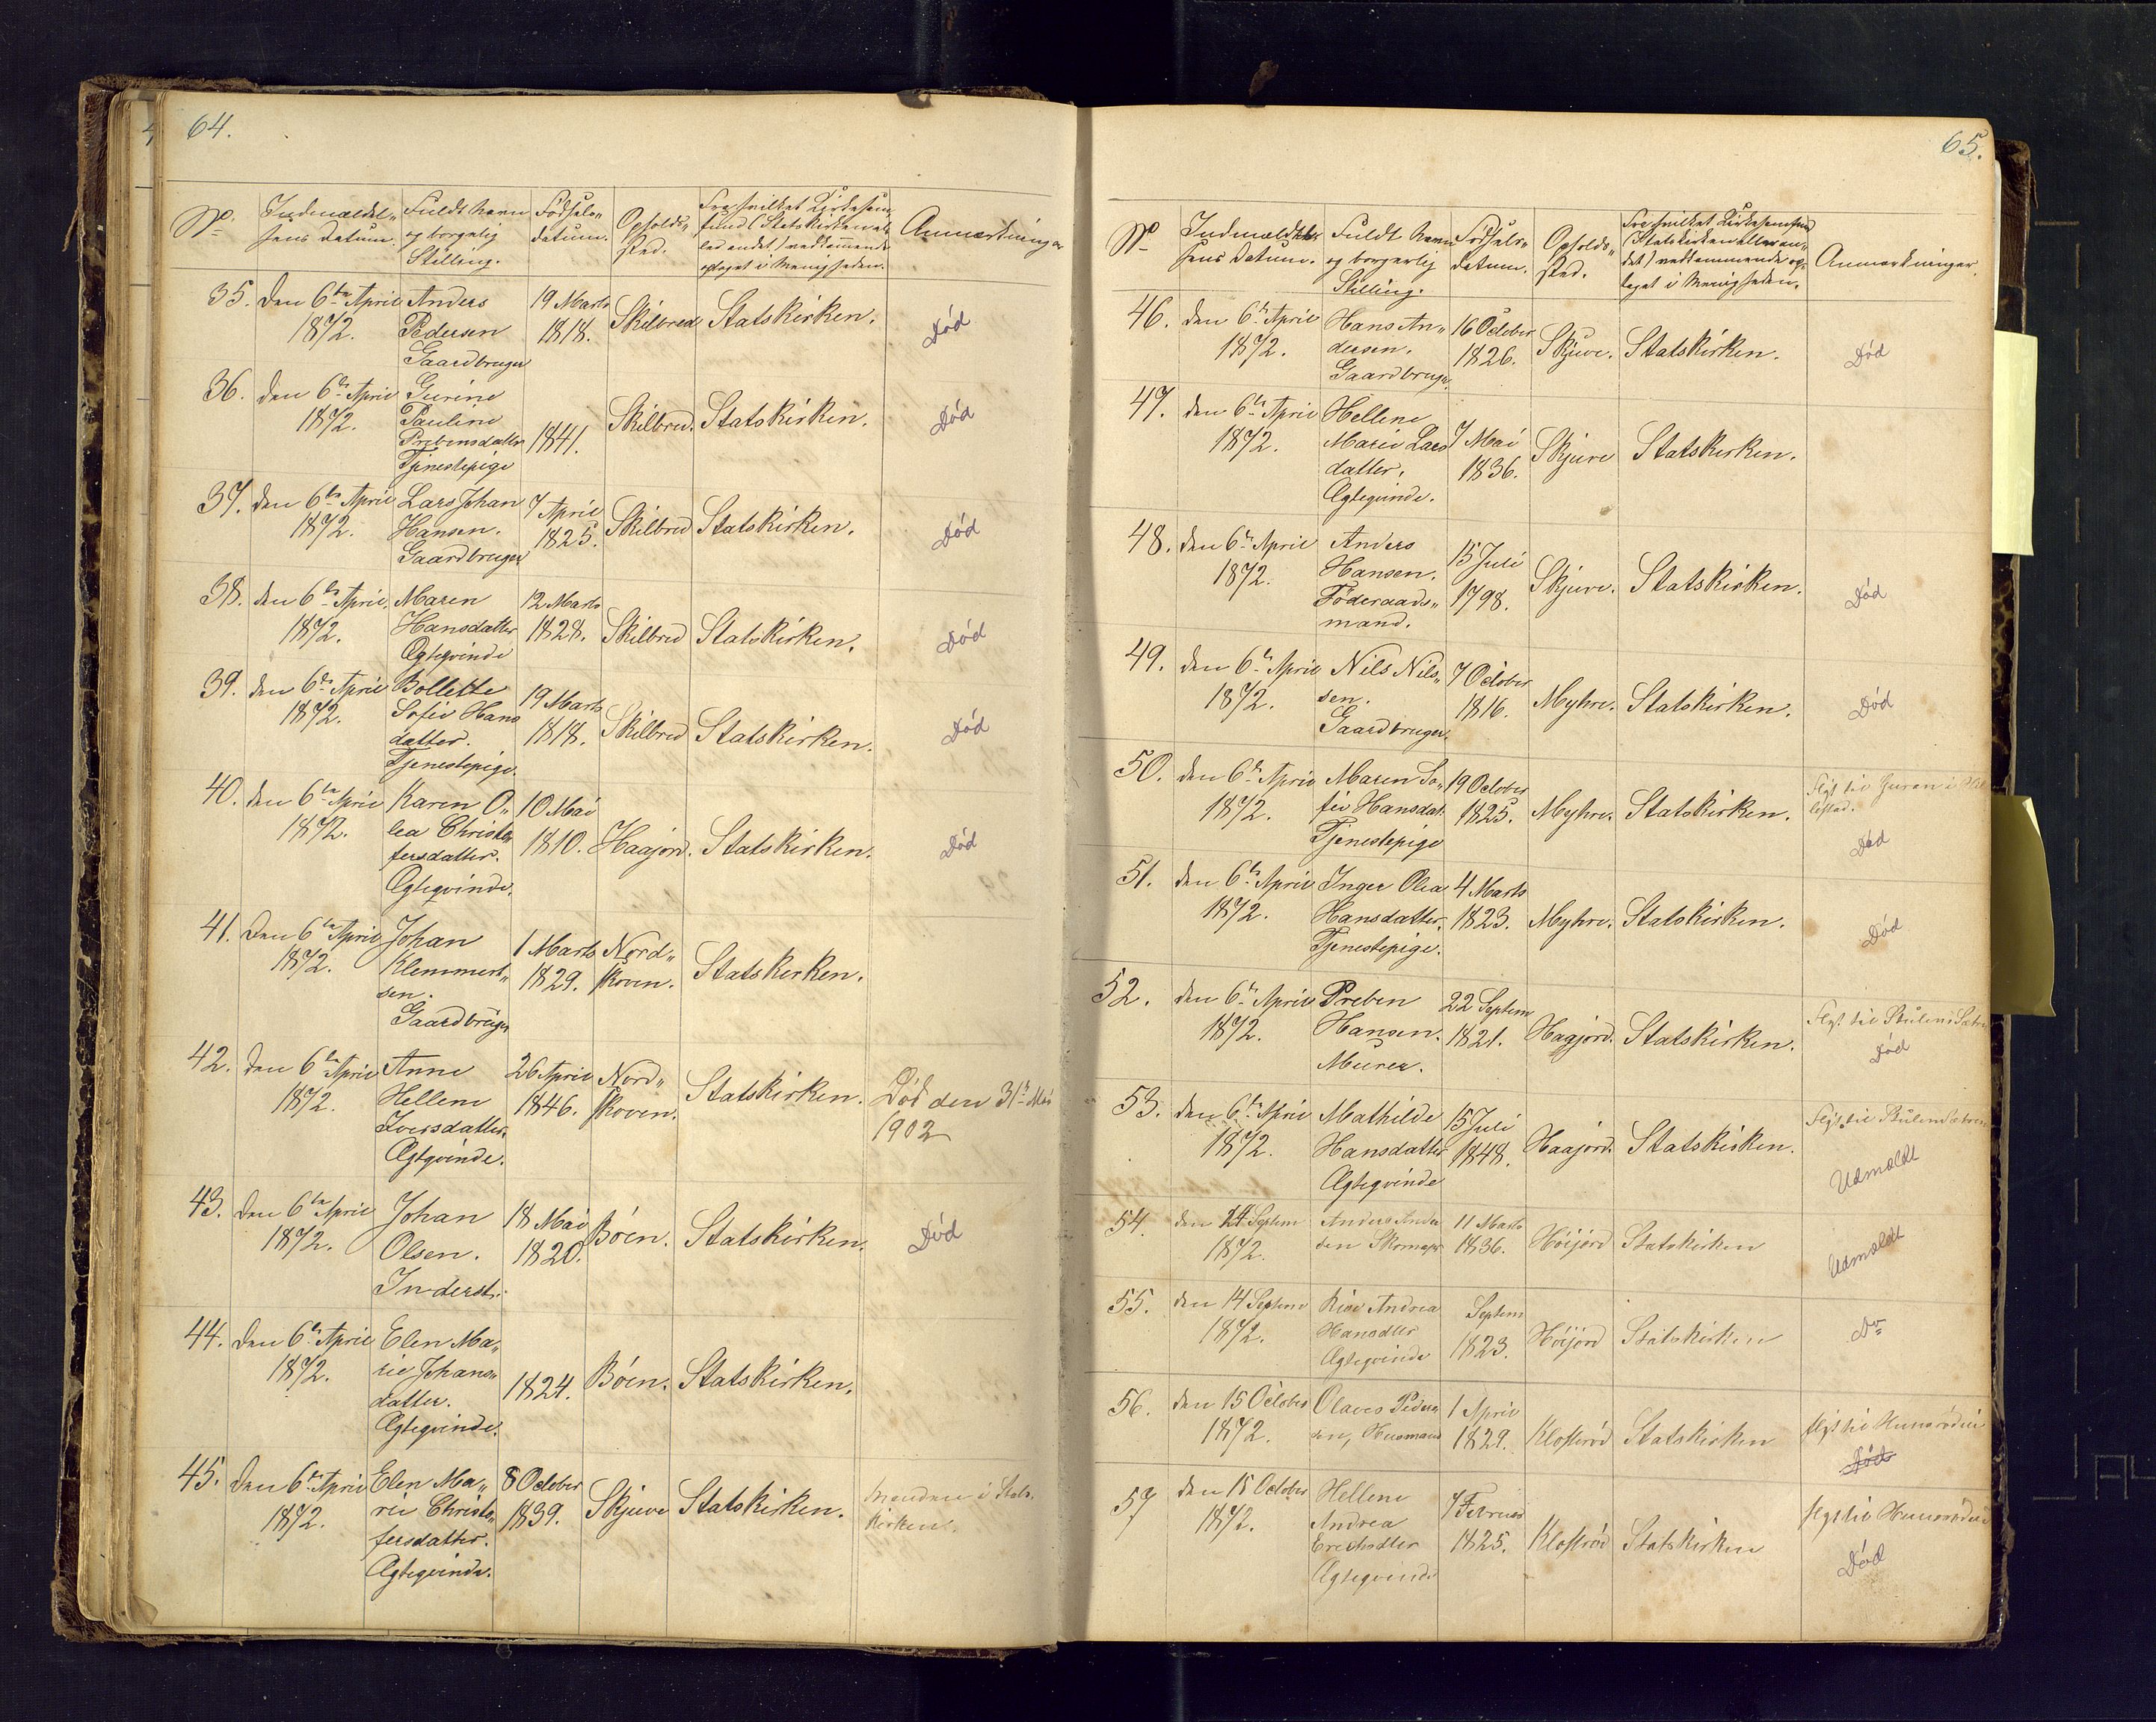 64.
No.
Indmældel„
sens Datum.
Fuldt Navn
og borgelig
Stilling.
Fødsels„
datum.
Opholds„
sted.
Fra hvilket Kirkesam„
fund (Statskirken el„
ler andet) vedkommende
optaget i Menigheden.
Anmærkninger
35. Den 6te April 1872. Anders Pedersen Gaardbruger 19 Marts 1818. Skilbred Statskirken. Død
36. den 6te April 1872. Gurine Pauline Prebensdatter Tjenestepige 1841. Skilbred. Statskirken. Død
37. den 6te April 1872. Lars Johan Hansen. Gaardbruger 7 April 1825. Skilbred Statskirken. Død
38. den 6te April 1872. Maren Hansdatter Ægteqvinde 12 Marts 1828. Skilbred Statskirken. Død
39. den 6te April 1872. Bollette Sofie Hans datter. Tjenestepige. 19 Marts 1818. Skilbred Statskirken. Død
40. den 6te April 1872. Karen O„ lea Christo„ fersdatter. Ægteqvinde. 10 Mai 1810. Haajord. Statskirken. Død
41. Den 6te April 1872. Johan Klemmert„ sen. Gaardbruger 1 Marts 1829. Nord„ skoven. Statskirken.
42. Den 6te April 1872. Anne Hellene Iversdatter. Ægteqvinde. 26 April 1846. Nord„ skoven. Statskirken. Død den 31te Mai 1902
43. Den 6te April 1872. Johan Olsen. Inderst. 18 Mai 1820. Böen. Statskirken. Død
44. Den 6te April 1872. Elen Ma„ rie Johans„ datter. Ægteqvinde. 1824. Böen. Statskirken.
45. Den 6te April 1872. Elen Ma„ rie Christo„ fersdatter. Ægteqvinde. 8 October 1839. Skjuve Statskirken. Manden i Stats„ kirken.
65.
No
Indmældel„
sens Datum.
Fuldt Navn
og borgerlig
Stilling.
Fødsels„
datum.
Opholds„
sted.
Fra hvilket Kirkesamfund
(Statskirken eller an„
det) vedkommende op„
taget i Menigheden.
Anmærkninger.
46. den 6te April 1872. Hans An„ dersen. Gaardbruger. 16 October 1826. Skjuve. Statskirken. Død
47. den 6te April 1872. Hellene Marie Lars datter. Ægteqvinde. 7 Mai 1836. Skjuve Statskirken.
48. den 6te April 1872. Anders Hansen. Føderaads„ mand. 15 Juli 1798. Skjuve. Statskirken. Død
49. den 6te April 1872. Nils Nils„ sen. Gaardbruger. 7 October 1816. Myhre. Statskirken. Død
50. den 6te April 1872. Maren So„ fie Hansdat. Tjenestepige 19 October 1825. Myhre. Statskirken. Flyt til Død
51. den 6te April 1872. Inger Olea Hansdatter. Tjenestepige. 4 Marts 1823. Myhre. Statskirken. Død
52. den 6te April 1872. Preben Hansen. Murer. 22 Septem 1821. Haajord. Statskirken. Flyt til Død
53. den 6te April 1872. Mathilde Hansdatter Ægteqvinde 15 Juli 1848. Haajord. Statskirken. Flyt til Udmeldt
54. den 24 Septem 1872. Anders Ander sen Skomager 11 Marts 1836. Höijord Statskirken Udmeldt
55. den 14 Septem 1872. Andrea Hansdtter Ægteqvinde Septem 1823. Höijord Statskirken do
56. den 15 October 1872. Olaves Peder sen, Husmand 1 April 1829. Klosterød Statskirken flyt til Død
57 den 15 October 1872. Hellene Andrea Erichsdtter Ægteqvinde 7 Februar 1825. Klosterød Statskirken flyt til Død